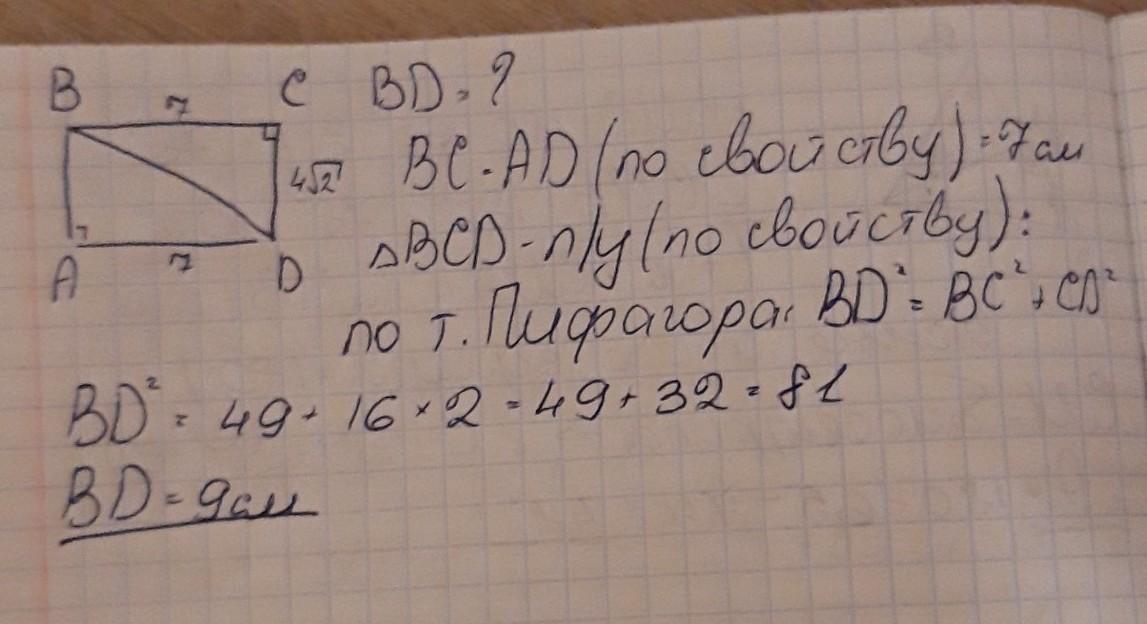 B 7 C BD = ?
4√2
BC = AD (по свойству) = 7 см
A 7 D
△BCD - п/у (по свойству):
по т. Пифагора: BD² = BC² + CD²
BD² = 49 + 16 × 2 = 49 + 32 = 81
BD = 9 см